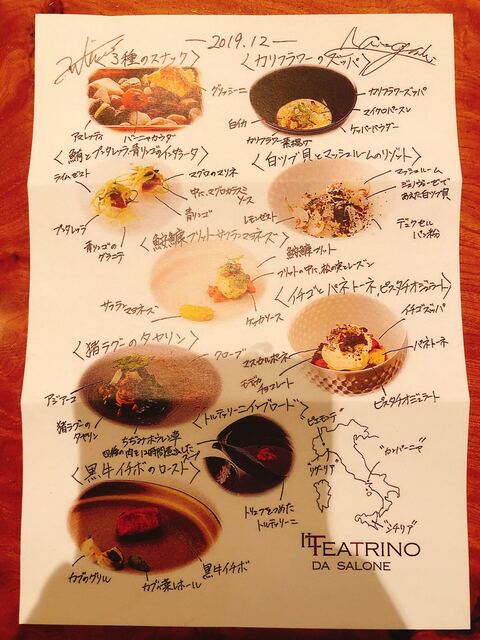 2019.12
〈3種のスナック〉
グリッシーニ
アマレッティ
バーニャカウダー
〈カリフラワーのズッパ〉
カリフラワーズッパ
マイクロパースレ
ケッパーパウダー
白イカ
カリフラワー素揚げ
〈鮪とブッタレッラ青リンゴのインサラータ〉
ライムゼスト
マグロのマリネ
中に、マグロカラスミソース
青リンゴ
ブッタレッラ
青リンゴのグラニテ
〈白ツブ貝とマッシュルームのリゾット〉
マッシュルーム
ジェノヴェーゼであえた白ツブ貝
レモンゼスト
デュクセルパン粉
〈鮟鱇フリットサフランマヨネーズ〉
鮟鱇フリット
フリットの中に、松の実とレーズン
サフランマヨネーズ
ケッカソース
〈イチゴとパネトーネ ピスタチオジェラート〉
イチゴズッパ
パネトーネ
マスカルポーネ
モディカチョコレート
ピスタチオジェラート
〈猪ラグーのタヤリン〉
クローブ
アジアーゴ
猪ラグーのタヤリン
ちぢみホウレン草
〈トルテッリーニインブロード〉
四種の肉を12時間煮出したスープ
トリュフをつめたトルテッリーニ
〈黒牛イチボのロースト〉
カブのグリル
カブの葉レホール
黒牛イチボ
ピエモンテ
リグーリア
"カンパーニア"
"シチリア"
IL TEATRINO
DA SALONE